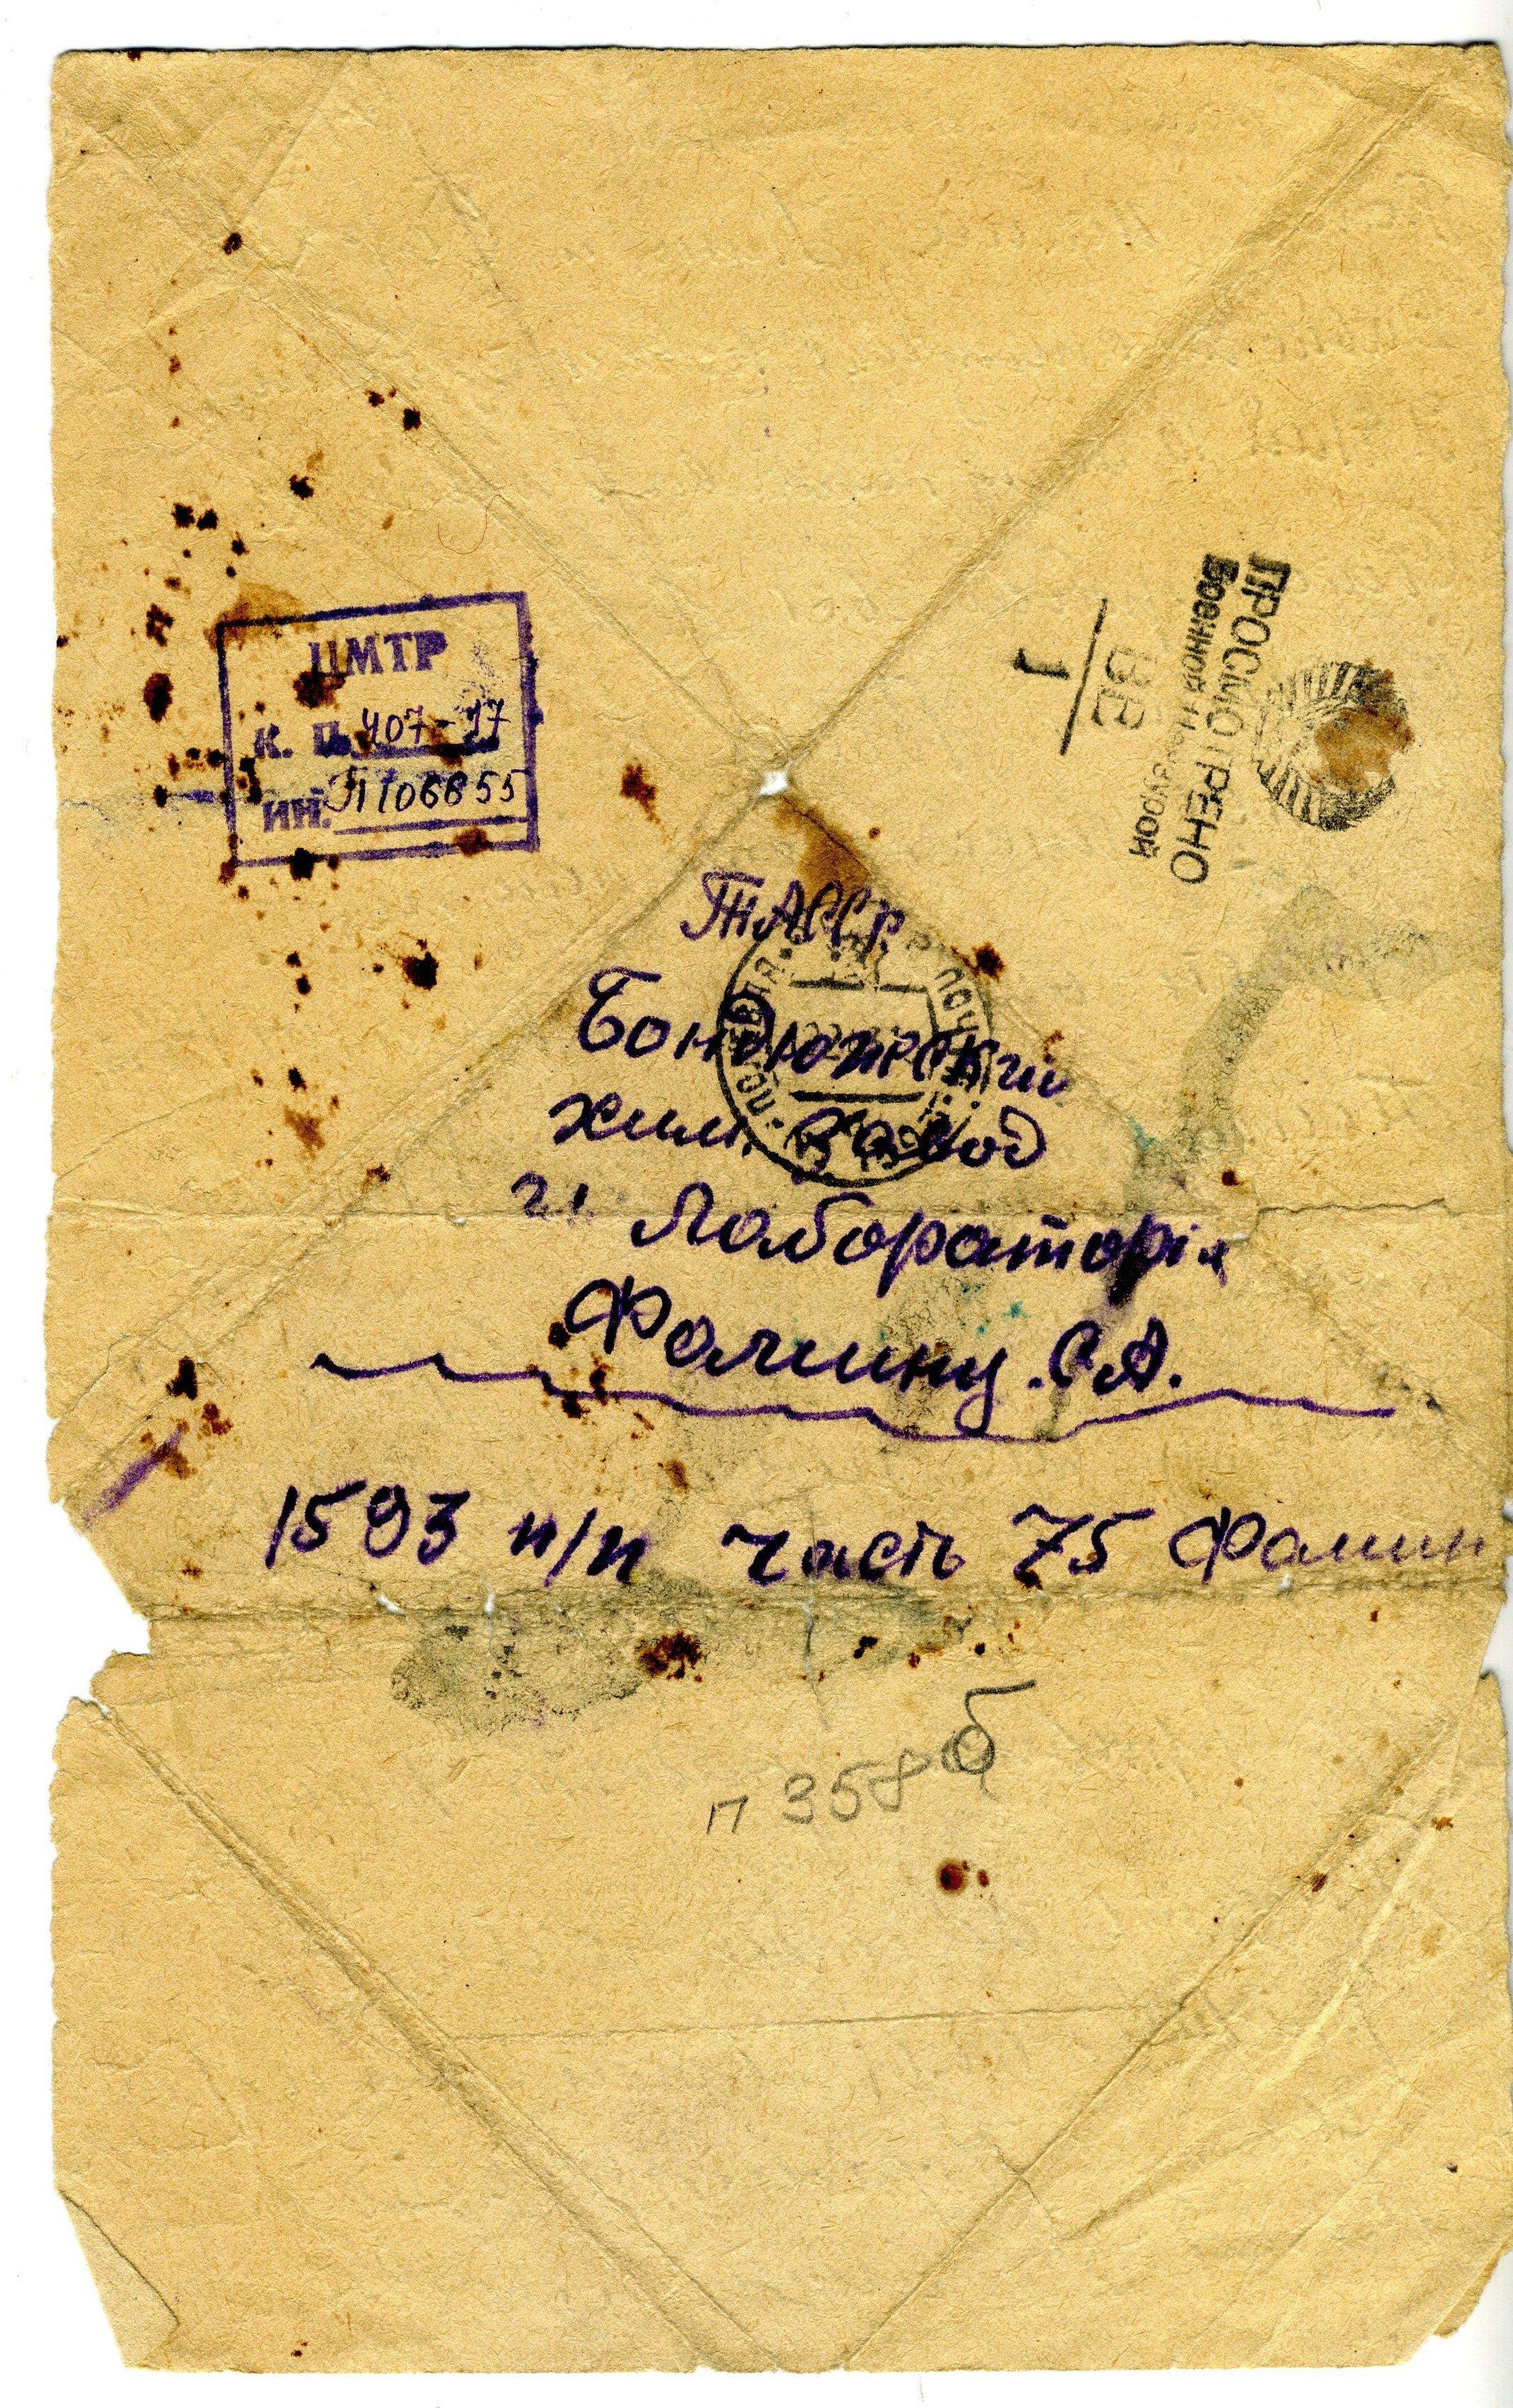 ЦМТР
К. П. 407-17
ИН.
ПРОСМОТРЕНО
Военной Цензурой
1
ТАССР.
Бондюжский
хим. Завод
гл. Лаборатория
Фомину. С.А.
1593 п/п часть 75 Фомин
п 358 б